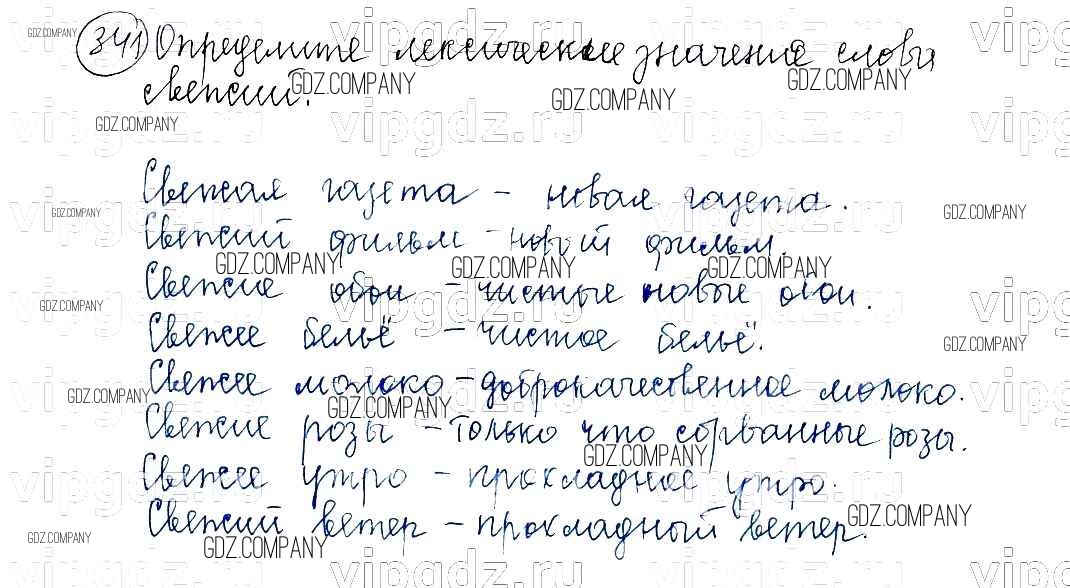 341 Определите лексическое значение слова
свежий.
Свежая газета – новая газета.
Свежий фильм – новый фильм.
Свежие обои – чистые новые обои.
Свежее бельё – чистое бельё.
Свежее молоко – доброкачественное молоко.
Свежие розы – только что сорванные розы.
Свежее утро – прохладное утро.
Свежий ветер – прохладный ветер.
GDZ.COMPANY
vipgdz.ru